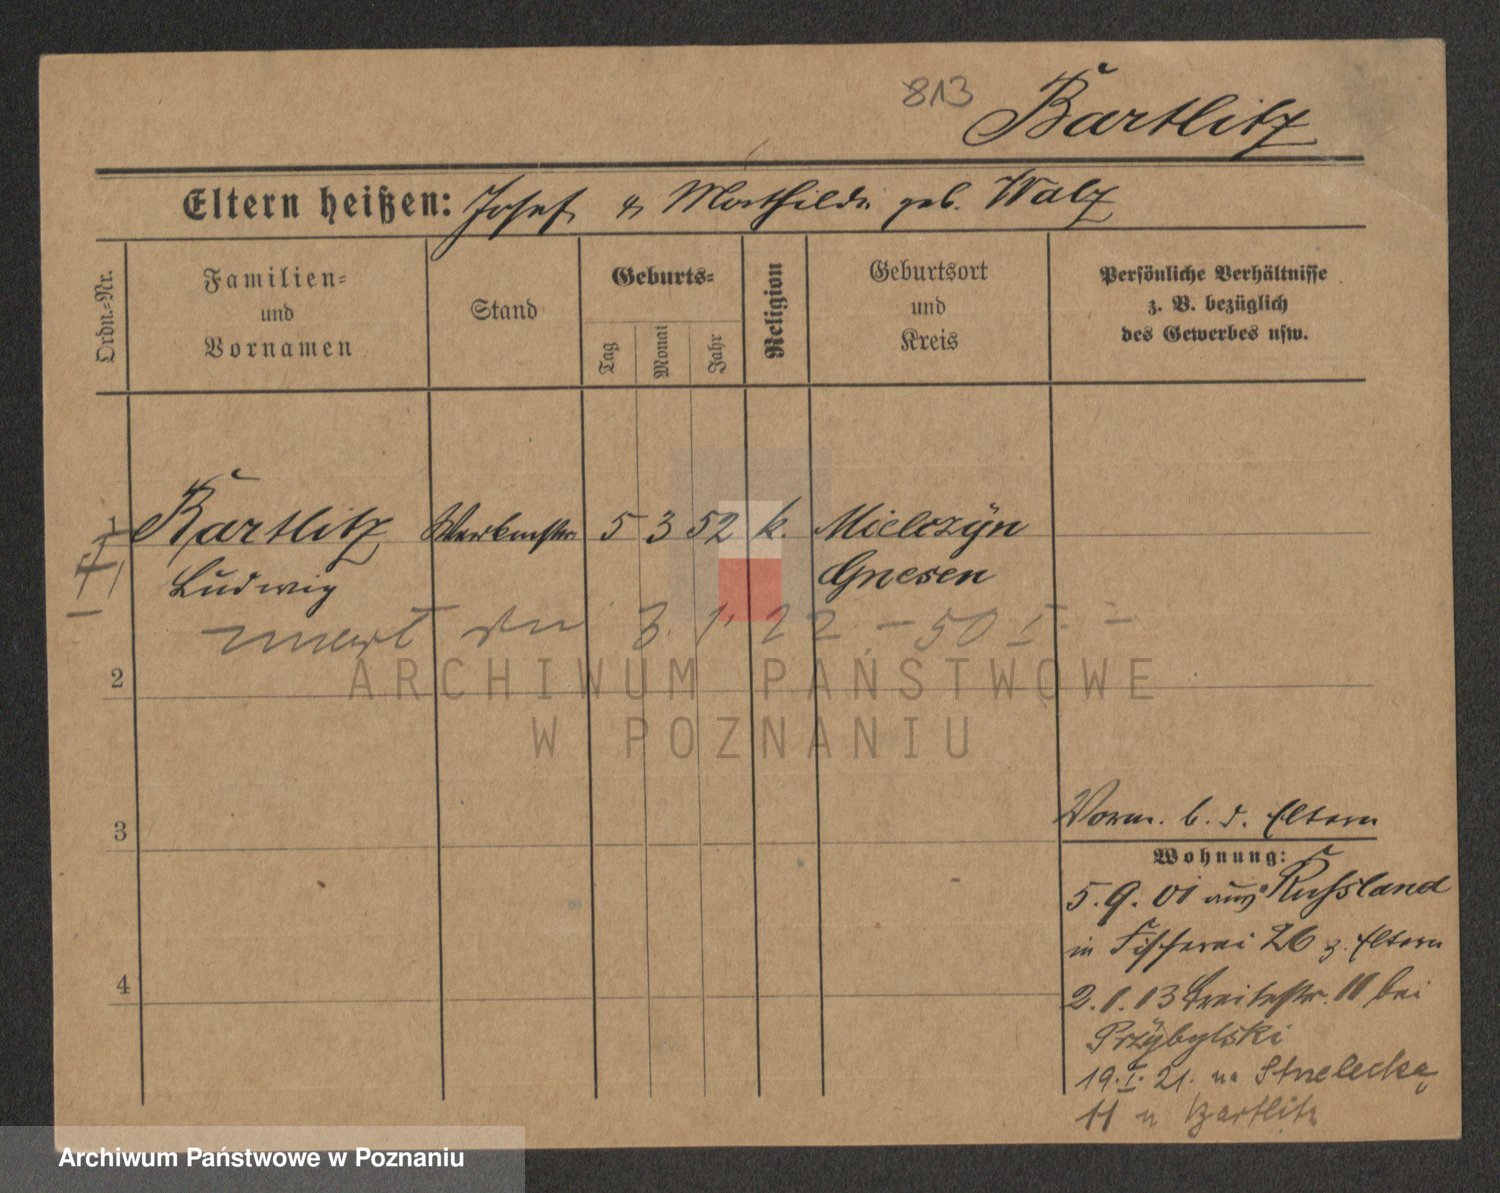 813 Bartlitz
Eltern heißen: Josef & Mathilde geb. Walz
Ordn.-Nr.
Familien-
und
Vornamen
Stand
Geburts-
Tag
Monat
Jahr
Religion
Geburtsort
und
Kreis
Persönliche Verhältnisse
z. B. bezüglich
des Gewerbes usw.
1 Bartlitz Werkmstr. 5 3 52 k. Mielczyn
Ludwig Gnesen
umarł 3. 1. 22 - 50 I. -
2
ARCHIWUM PAŃSTWOWE
W POZNANIU
3
4
Vorm. b. d. Eltern
Wohnung:
5.9.01 aus Russland
in Fischerei 26 z. Eltern
2.1.13 Breitestr. 11 bei
Przybylski
19.I.21. na Strzelecką
11 u Bartlitz
Archiwum Państwowe w Poznaniu